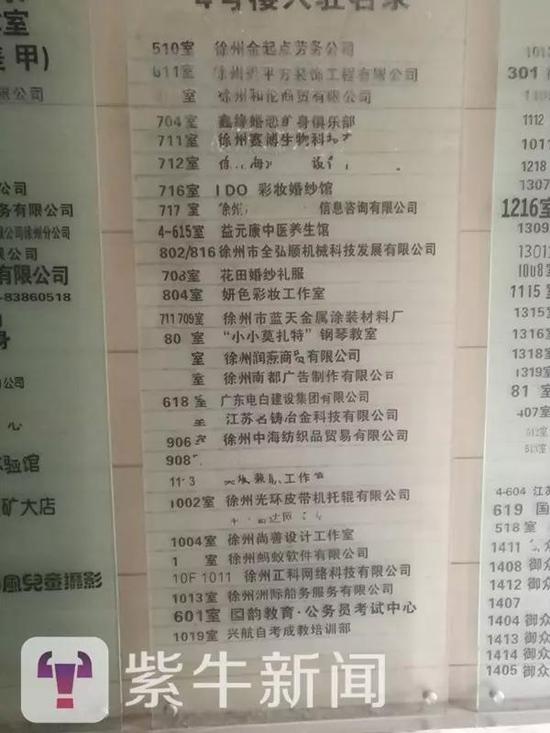 4号楼入驻名录
室
甲)
限公司
公司
务有限公司
公司徐州分公司
限公司
有限公司
-83860518
身
公司
心
验馆
矿大店
風兒童攝影
510室 徐州金起点劳务公司
611室 徐州 平方装饰工程有限公司
室 徐州和伦商贸有限公司
704室 鑫缘婚恋 身俱乐部
711室 徐州赛博生物科
712室
716室 I DO 彩妆婚纱馆
717室 信息咨询有限公司
4-615室 益元康中医养生馆
802/816 徐州市全弘顺机械科技发展有限公司
708室 花田婚纱礼服
804室 妍色彩妆工作室
711 709室 徐州市蓝天金属涂装材料厂
80 室 “小小莫扎特”钢琴教室
室 徐州润燕商贸有限公司
室 徐州南都广告制作有限公司
618 室 广东电白建设集团有限公司
室 江苏名铸冶金科技有限公司
906 徐州中海纺织品贸易有限公司
908
工作室
1002室 徐州光环皮带机托辊有限公司
1004室 徐州尚善设计工作室
1 室 徐州蚂蚁软件有限公司
10F 1011 徐州正科网络科技有限公司
1013室 徐州洲际船务服务有限公司
601室 国韵教育·公务员考试中心
1019室 兴航自考成教培训部
1013
301 御
1112
1011
1218
1307
1216室
1309
1301
1008室
1115室
1315
1316
1318
1319
81 室
407室
4-604 江苏
619 国
518室
1411
1408 御众
1412 御众
1407
1404 御众
1413 御众
1414 御众
1405 御众
紫牛新闻